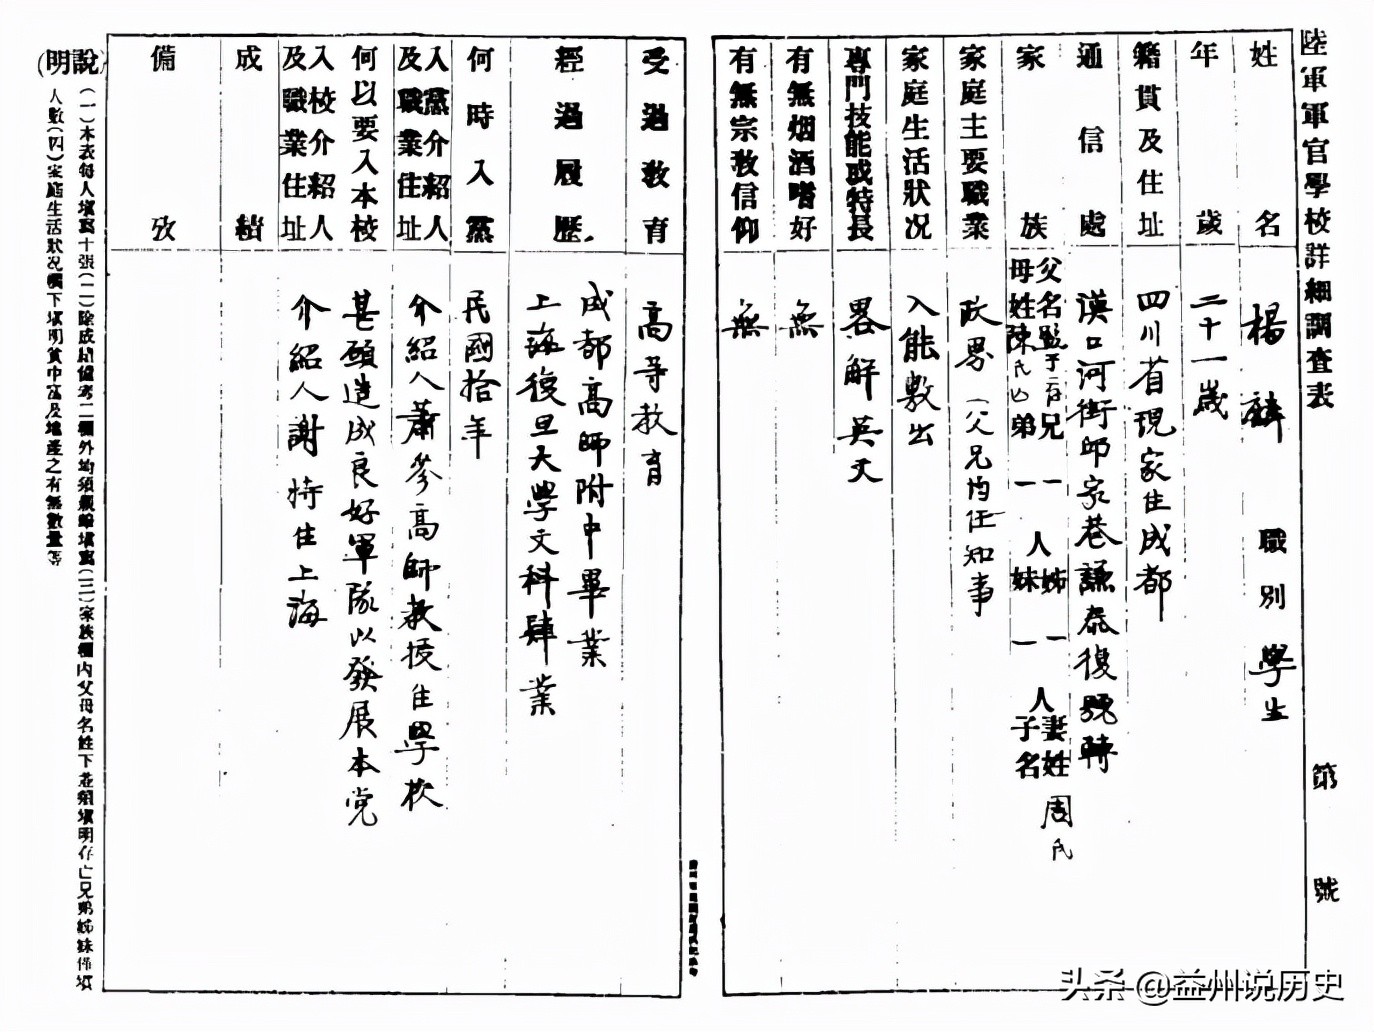 陸軍軍官學校詳細調查表 第 號
姓名 楊麟 職別 學生
年歲 二十一歲
籍貫及住址 四川省現家住成都
通信處 漢口河街邱家巷謙泰復號轉
家族 父名 兄一人姊一人妻姓周氏
母姓陳氏 弟一人妹一人子名
家庭主要職業 政界(父兄均任知事)
家庭生活狀況 入能敷出
專門技能或特長 畧解英文
有無烟酒嗜好 無
有無宗教信仰 無
受過教育 高等教育
經過履歷 成都高師附中畢業
上海復旦大學文科肄業
何時入黨 民國拾年
入黨介紹人及職業住址 介紹人蕭參高師教授住學校
何以要入本校 甚願造成良好軍隊以發展本党
入校介紹人及職業住址 介紹人謝持住上海
成績
備攷
(說明)(一)本表每人填寫十張(二)除成績備考二欄外均須親筆填寫(三)家族欄內父母名姓下並須填明存亡兄弟姊妹僅填
人數(四)家庭生活狀况欄下填明貧中富及地產之有無數量等
头条 @益州说历史